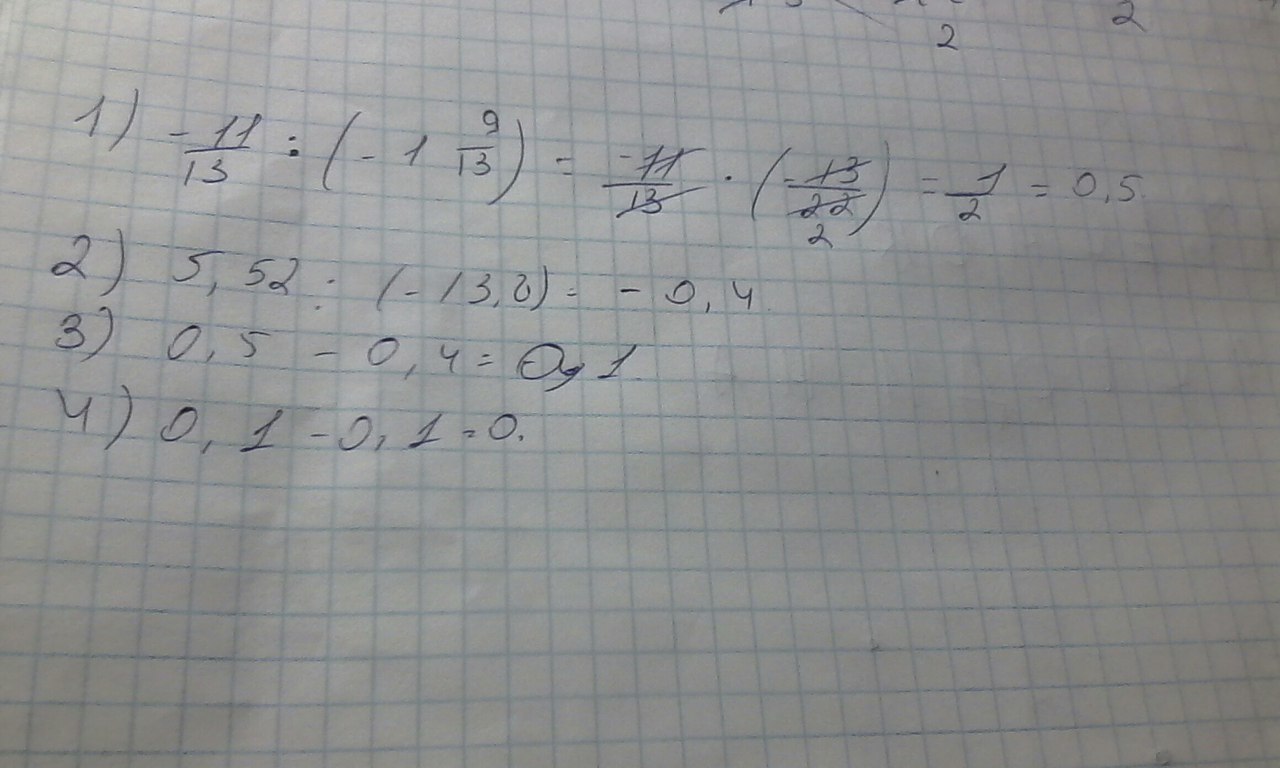 2 2
1) -11/13 : (-1 9/13) = -11/13 · (-13/22) = 1/2 = 0,5
2
2) 5,52 : (-13,8) = -0,4
3) 0,5 - 0,4 = 0,1
4) 0,1 - 0,1 = 0.